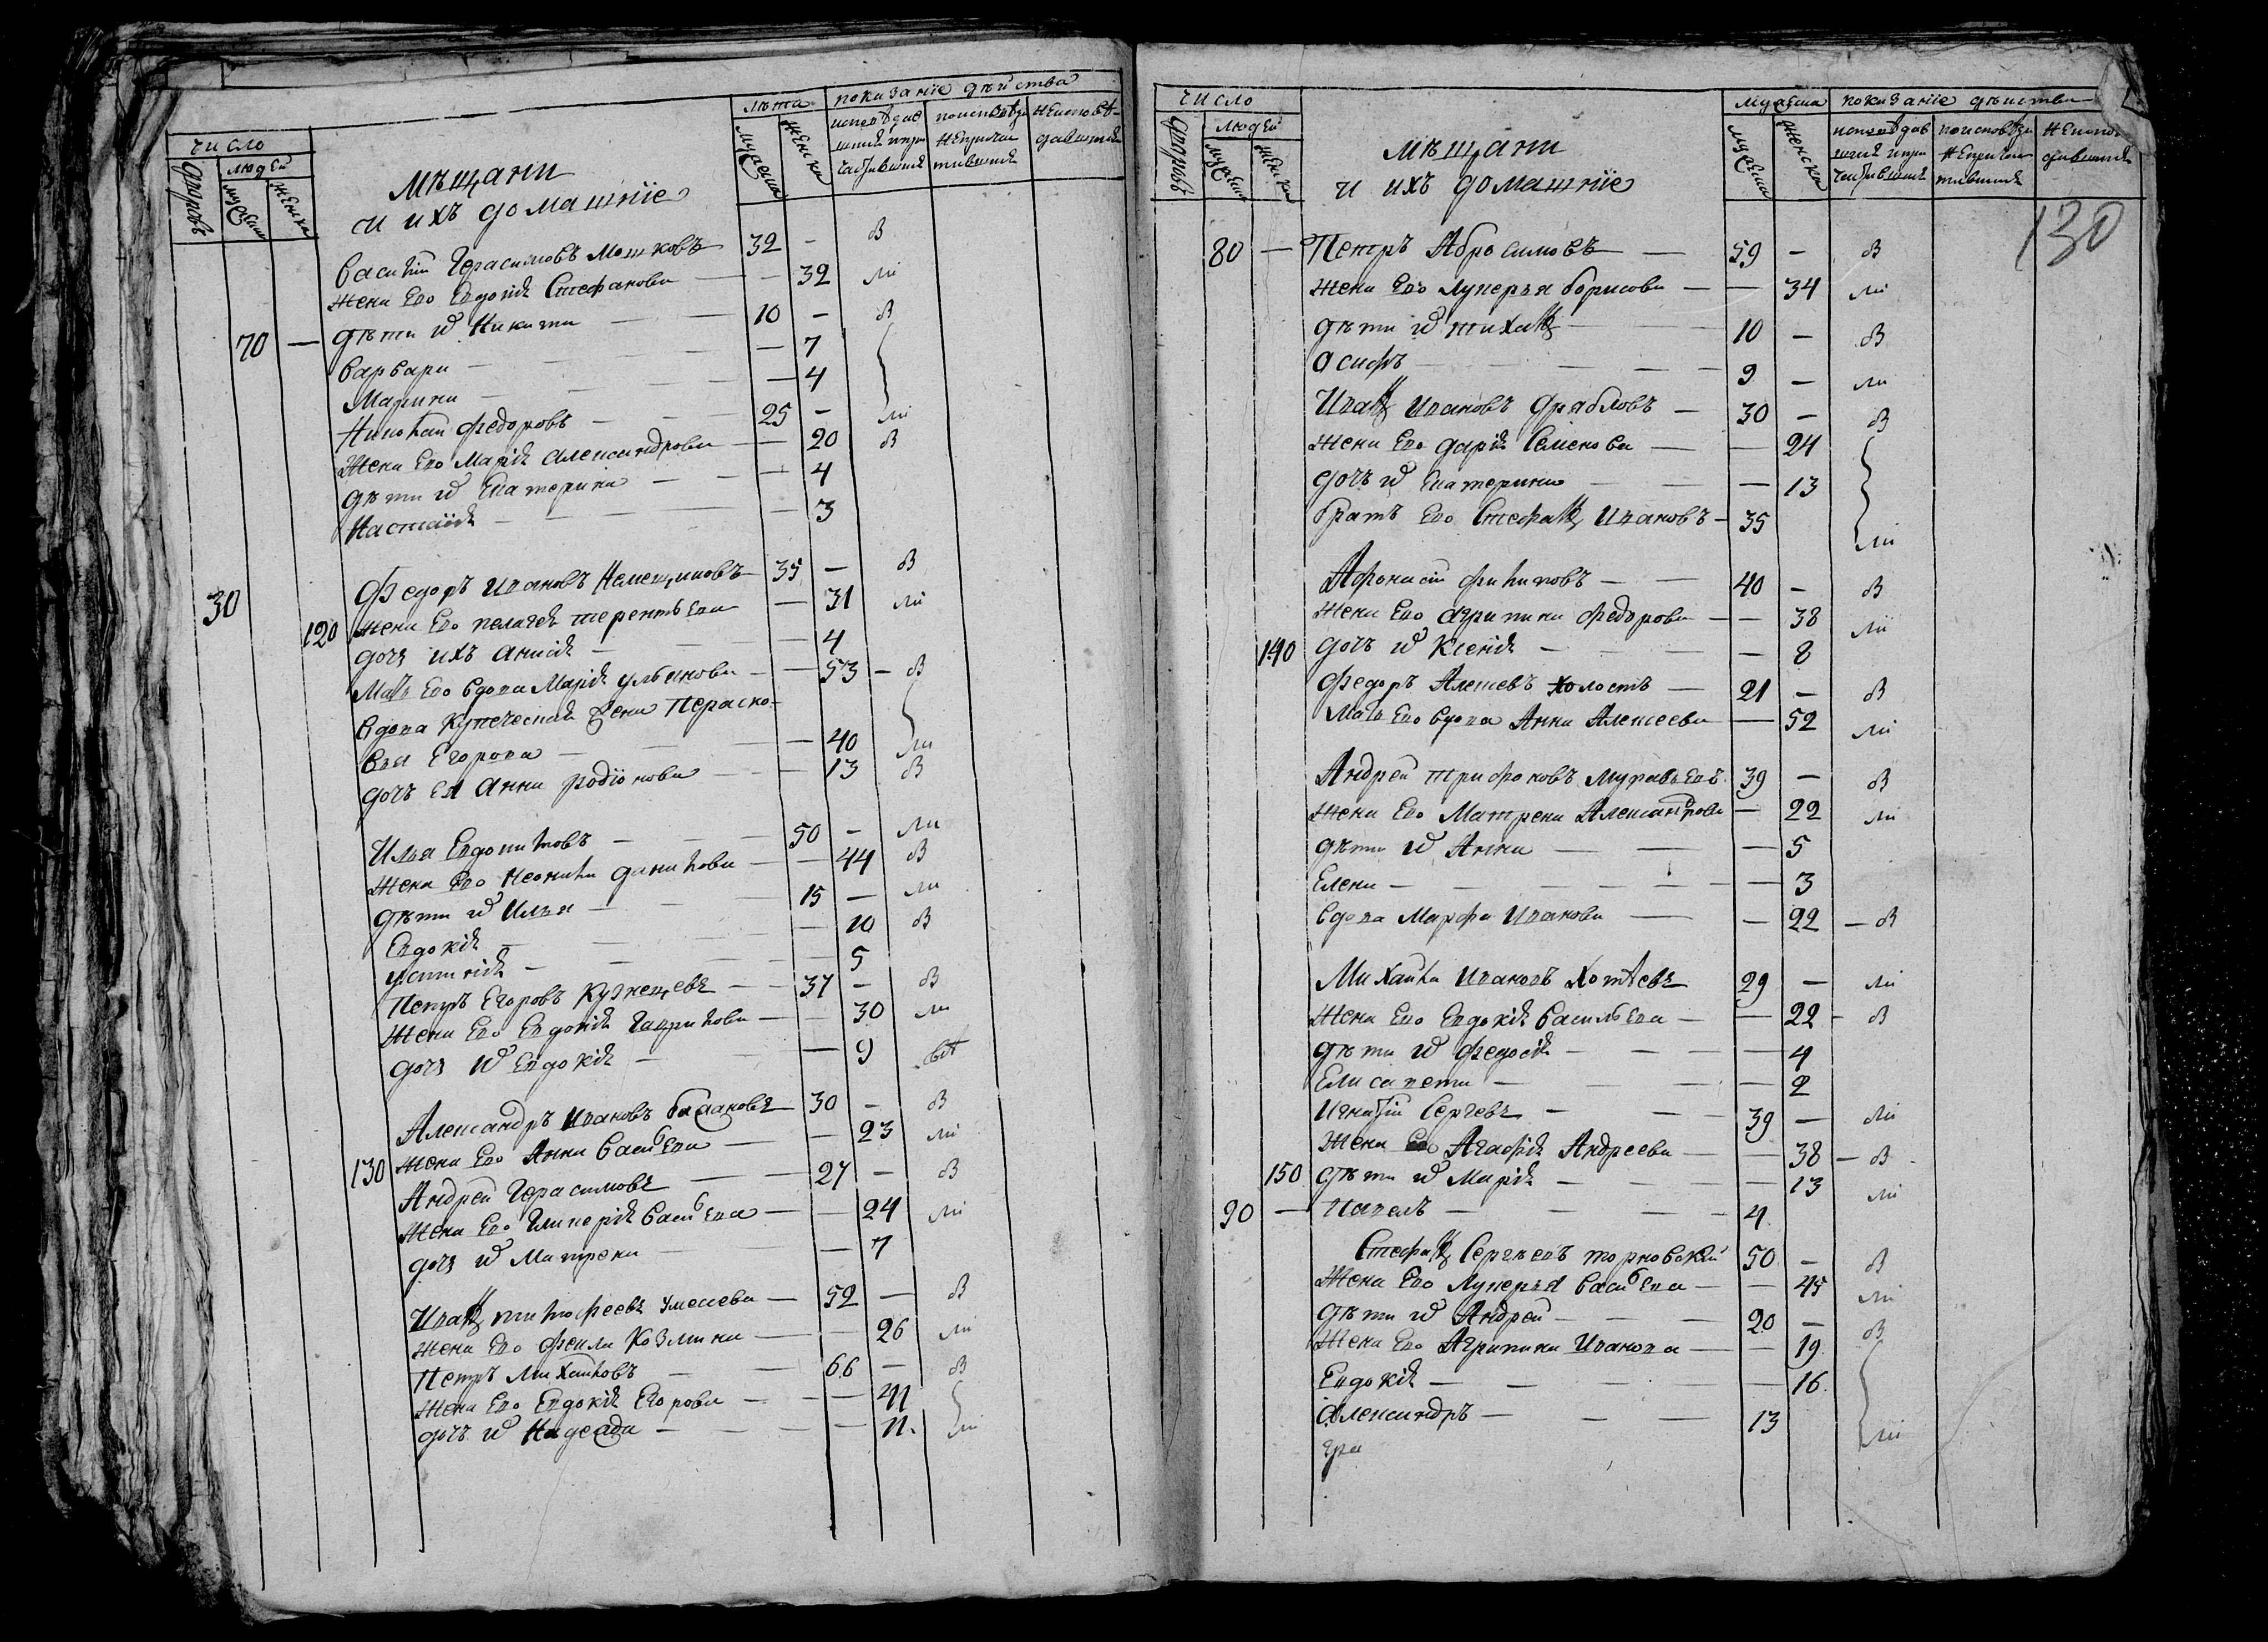 число
дворовъ
людей
мужеска
женска
мѣщани
и ихъ домашніе
лѣта
мужеска
женска
показаніе дѣйства
исповѣдав
шихъ и при
частвшихъ
поисповѣда
не причас
тившихъ
неисповѣ-
давшихъ
Василій Герасимовъ Мошковъ 32 - в
Жена Его Евдокія Стефанова - - 32 ми
70 - дѣти ѿ Никита - - 10 - в
Варвара - - 7
Марина - - 4
Николай Федоровъ - 25 - ми
Жена Его Марія Александрова - - 20 в
дѣти ѿ Екатерина - - - 4
Настасія - - 3
30 Федоръ Ивановъ - 35 - в
120 Жена Его Пелагея Терентьева - 31 ми
дочь ихъ Анисія - - 4
Мать Его вдова Марія Ульянова - - 53 - в
Вдова Купеческая жена Параско-
вья Егорова - - - 40 ми
дочь ея Анна Родіонова - - 13 в
Илья Евдокимовъ - - 50 - ми
Жена Его Неонила Данилова - - 44 в
дѣти ѿ Илья - - 15 - ми
Евдокія - - - 10 в
Устинія - - - 5
Петръ Егоровъ Кузнецовъ - - 37 - в
Жена Его Евдокія Гаврилова - - 30 ми
дочь ѿ Евдокія - - 9
Александръ Ивановъ - 30 - в
130 Жена Его Анна Васильева - - 23 ми
Андрей Герасимовъ - - 27 - в
Жена Его Гликерія Васильева - - 24 ми
дочь ѿ Матрена - - 7
Иванъ Тимофеевъ - 52 - в
Жена Его Фекла Козмина - - 26 ми
Петръ Михайловъ - - 66 - в
Жена Его Евдокія Егорова - - - 41
дочь ѿ Надежда - - - - 11. ми
число
дворовъ
людей
мужеска
женска
мѣщани
и ихъ домашніе
мужеска
мужеска
женска
показаніе дѣиства
исповѣдав
шихъ и при
частившихъ
поисповѣда
не причас
тившихъ
неиспо
давшихъ
130
80 - Петръ Абросимовъ - 59 - в
Жена Его Лукерья Борисова - - 34 ми
дѣти ѿ Тиханъ - - 10 - в
Осифъ - - - - - 9 - ми
Иванъ Ивановъ - 30 - в
Жена Его Дарія Семенова - - 24
дочь ѿ Екатерина - - - 13
братъ Его Стефанъ Ивановъ - 35 ми
Афонасій Филиповъ - - 40 - в
Жена Его Агрипина Федорова - - 38 ми
140 дочь ѿ Ксенія - - - - 8
Федоръ Алексѣевъ холостъ - 21 - в
Мать Его вдова Анна Алексеева - 52 ми
Андрей Трифоновъ Муравьевъ. 39 - в
Жена Его Матрена Александрова - 22 ми
дѣти ѿ Анна - - - 5
Елена - - - - - - - 3
Вдова Марфа Иванова - - 22 - в
Михайла Ивановъ Хотѣевъ 29 - ми
Жена Его Евдокія Васильева - - 22 - в
дѣти ѿ Федосія - - - - 4
Елисавета - - - - 2
Игнатій Сергевъ - - - 39 - ми
Жена Его Агафія Андреева - - 38 - в
150 дѣти ѿ Марія - - - - 13 ми
90 - Павелъ - - - - 4
Стефанъ Сергѣевъ Торновской 50 - в
Жена Его Лукерья Васильева - - 45 ми
дѣти ѿ Андрей - - - 20 - в
Жена Его Агрипина Иванова - - 19
Евдокія - - - - - 16.
Александръ - - - 13 ми
гра